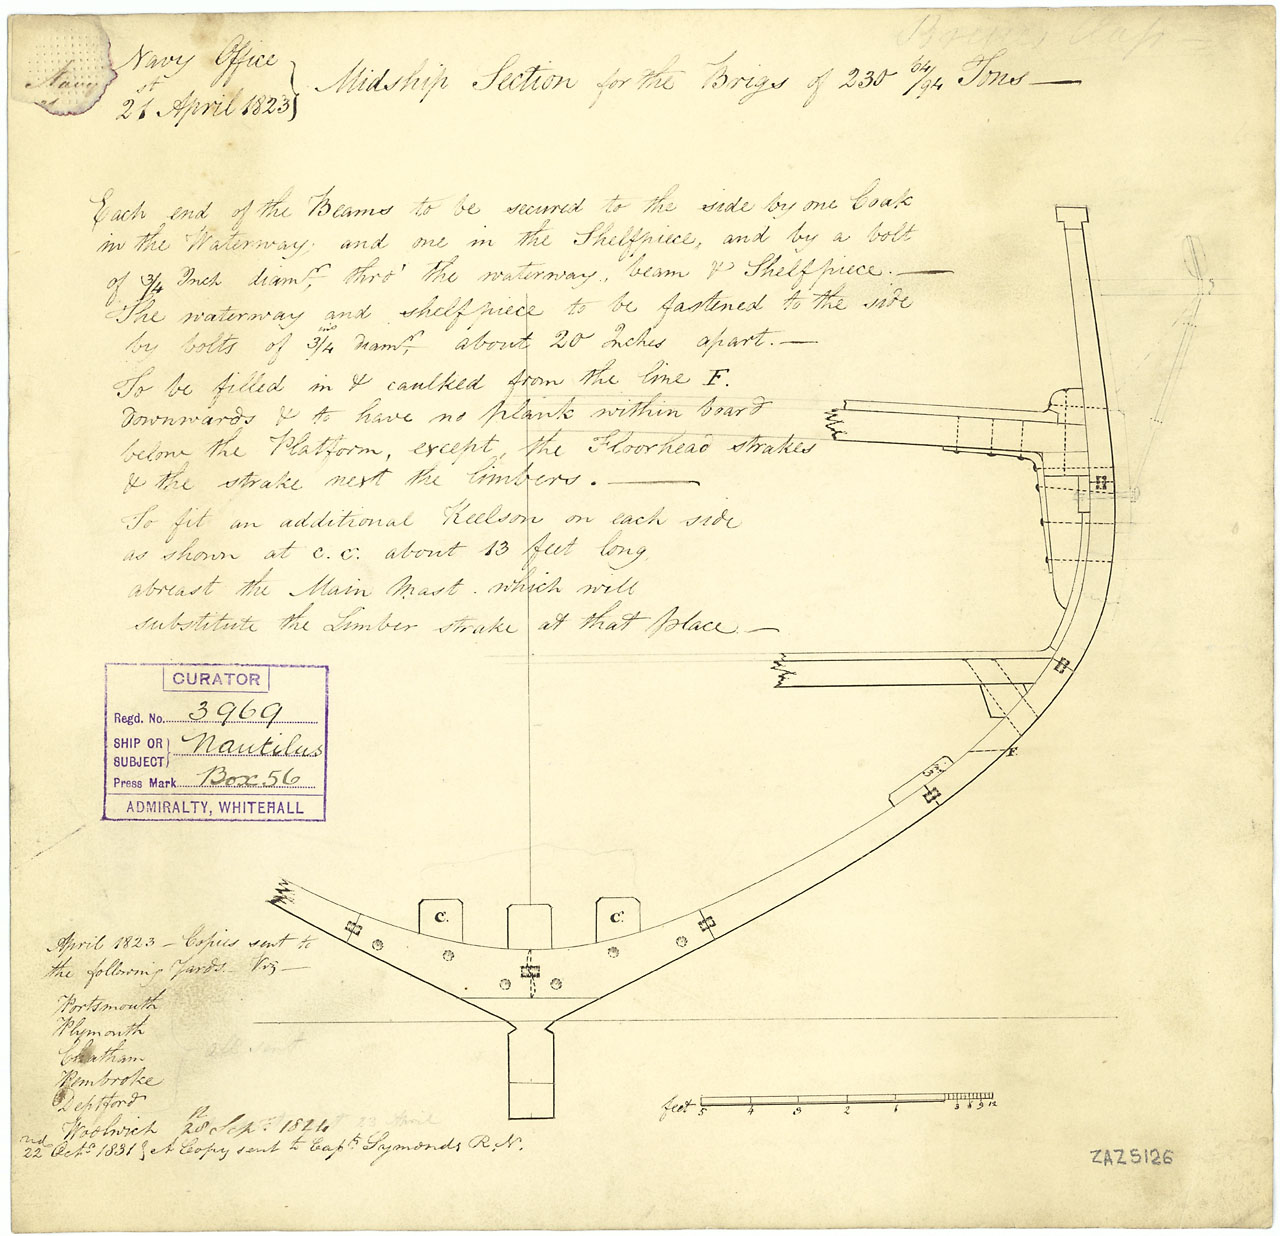 Navy Office
21st April 1823
Midship Section for the Brigs of 230 64/94 Tons
Each end of the Beams to be secured to the side by one Coak
in the Waterway, and one in the Shelfpiece, and by a bolt
of 3/4 Inch diamr, thro' the waterway, beam & Shelfpiece.
The waterway and shelfpiece to be fastened to the side
by bolts of 3/4 ins diamr, about 20 Inches apart.
To be filled in & caulked from the line F.
Downwards & to have no plank within board
below the Platform, except, the Floorhead strakes
& the strake next the limbers.
To fit an additional Keelson on each side
as shown at C.C. about 13 feet long
abreast the Main Mast. which will
substitute the Limber strake at that place
CURATOR
Regd. No. 3969
SHIP OR SUBJECT} Nautilus
Press Mark Box 56
ADMIRALTY, WHITEHALL
F
3
C.
C.
April 1823 – Copies sent to
the following Yards. Viz
Portsmouth
Plymouth
Chatham
Pembroke
Deptford
Woolwich 28th Sepr 1824
all sent
22nd Octr 1831} A Copy sent to Captn Symonds R.N.
feet 5 4 3 2 1 3 6 9 12
ZAZ5126